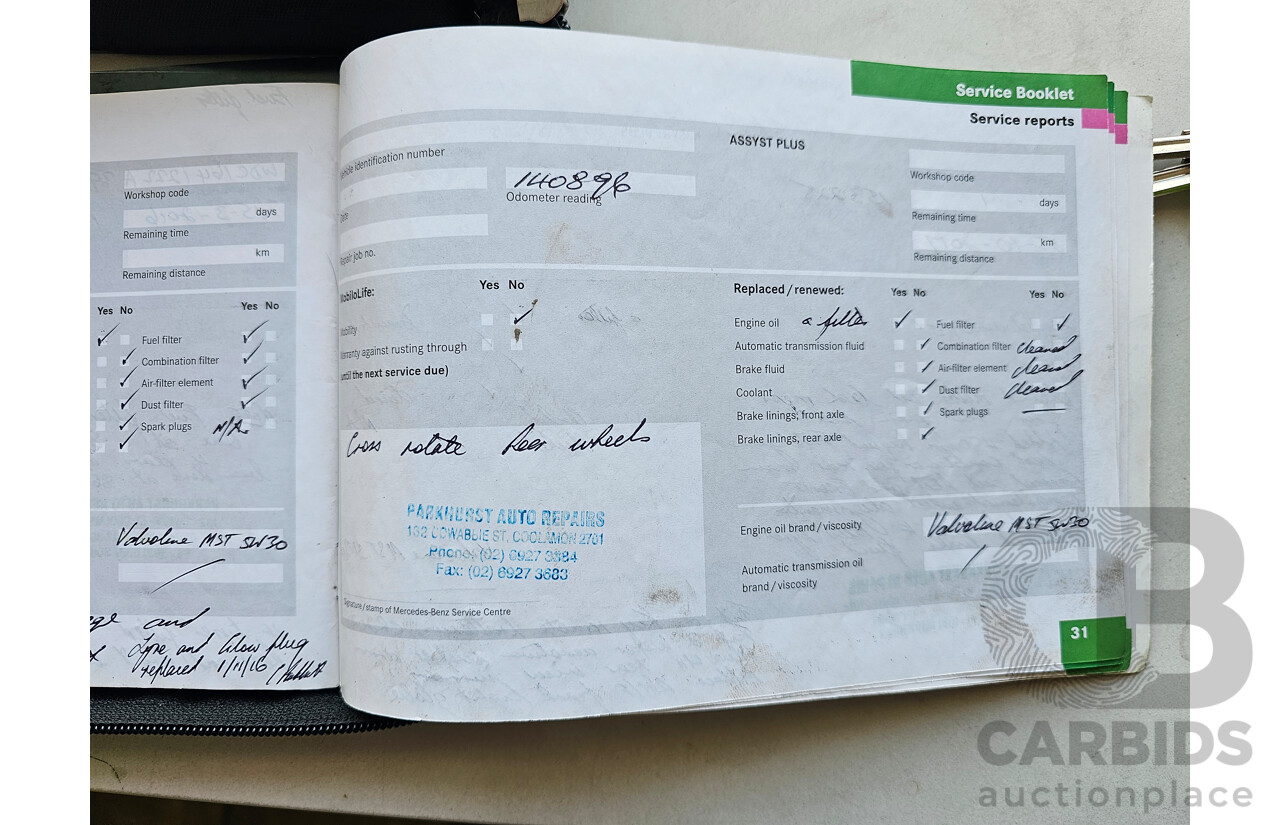 Workshop code
days
Remaining time
km
Remaining distance
Yes No
Yes No
Fuel filter
Combination filter
Air-filter element
Dust filter
Spark plugs N/A
Valvoline MST 5W30
and
Type and Glow plug
replaced 1/11/16
Service Booklet
Service reports
identification number
140896
Odometer reading
Date
Repair job no.
ASSYST PLUS
Workshop code
days
Remaining time
km
Remaining distance
MobiloLife:
Yes No
Mobility
Warranty against rusting through
(until the next service due)
Cross rotate Rear wheels
PARKHURST AUTO REPAIRS
132 COWABBIE ST, COOLAMON 2701
Phone: (02) 6927 3684
Fax: (02) 6927 3683
Signature / stamp of Mercedes-Benz Service Centre
Replaced / renewed:
Yes No
Yes No
Engine oil & filter
Fuel filter
Automatic transmission fluid
Combination filter cleaned
Brake fluid
Air-filter element cleaned
Coolant
Dust filter cleaned
Brake linings, front axle
Spark plugs
Brake linings, rear axle
Engine oil brand / viscosity
Valvoline MST 5W30
Automatic transmission oil
brand / viscosity
31
CB
CARBIDS
auctionplace